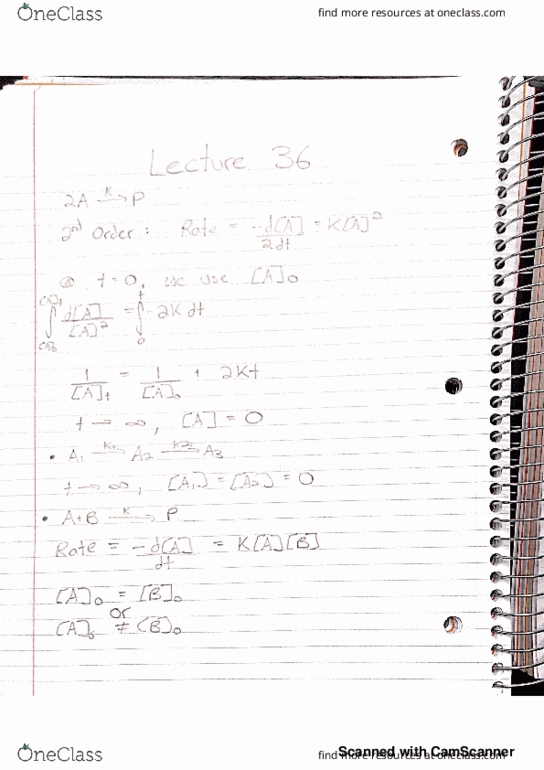 OneClass
find more resources at oneclass.com
Lecture 36
2A —K→ P
2nd Order: Rate = -d[A]/2dt = K[A]²
@ t=0, we use [A]₀
∫_[A]₀^[A]t d[A]/[A]² = ∫_0^t -2K dt
1/[A]t = 1/[A]₀ + 2Kt
t → ∞, [A] = 0
• A₁ —K₁→ A₂ —K₂→ A₃
t → ∞, [A₁] = [A₂] = 0
• A+B —K→ P
Rate = -d[A]/dt = K[A][B]
[A]₀ = [B]₀
or
[A]₀ ≠ [B]₀
OneClass
find more resources at oneclass.com
Scanned with CamScanner